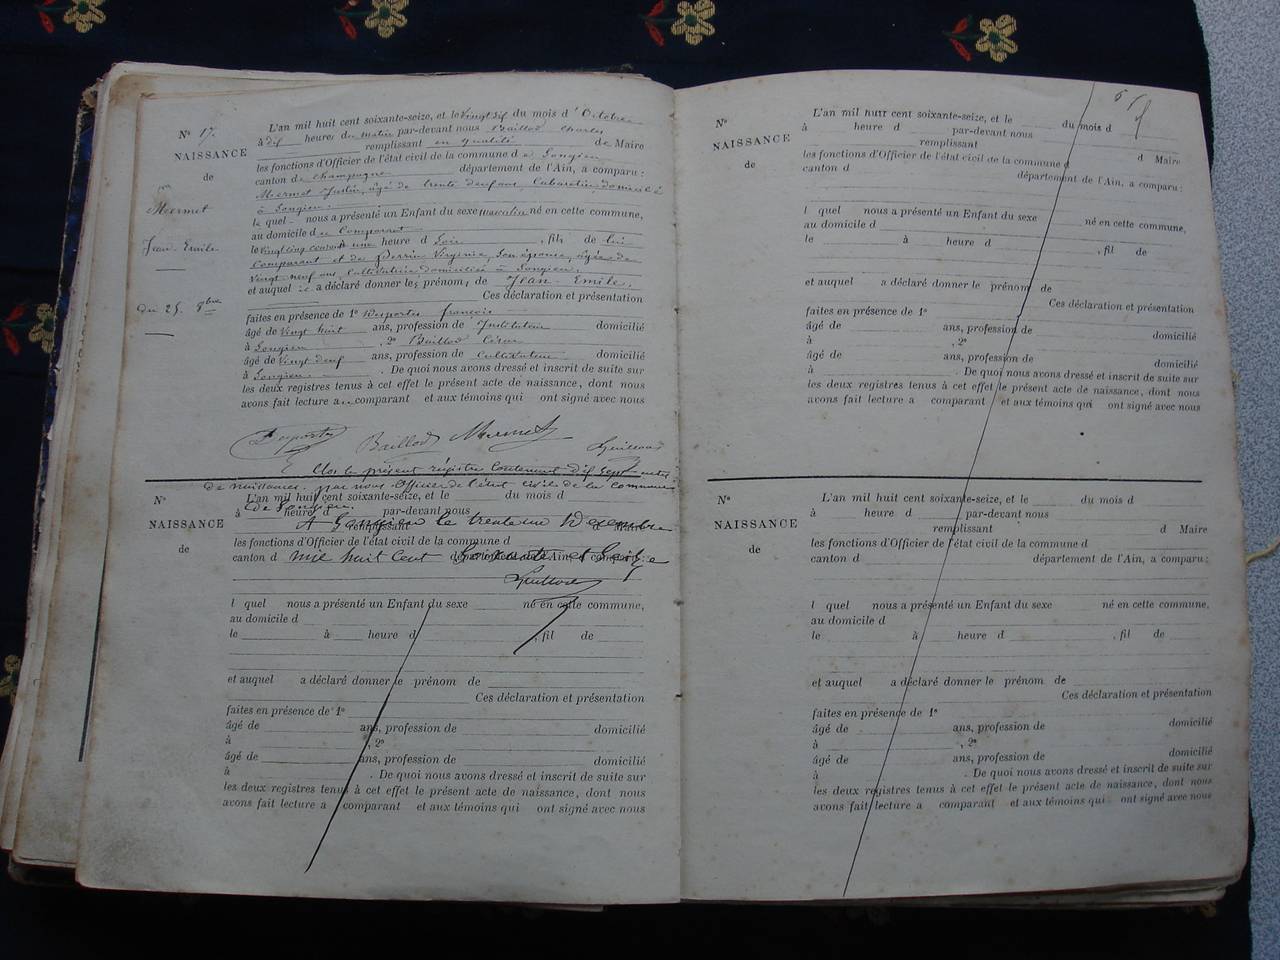 Nº 17.
NAISSANCE
de
Mermet
Jean Emile
du 25. 8bre
L'an mil huit cent soixante-seize, et le vingt six du mois d'Octobre
à dix heures du matin par-devant nous Baillod Charles
remplissant en qualité de Maire
les fonctions d'Officier de l'état civil de la commune de Songieu
canton de champagne département de l'Ain, a comparu :
Mermet Justin, âgé de trente deux ans, domicilié
à Songieu.
le quel nous a présenté un Enfant du sexe masculin né en cette commune,
au domicile du Comparant
le vingt cinq courant à une heure d Soir, fils de lui
Comparant et de Perrin Virginie, Son épouse, âgée de
vingt neuf ans, Cultivatrice domiciliée à Songieu.
et auquel il a déclaré donner les prénoms de Jean-Emile.
Ces déclaration et présentation
faites en présence de 1º Desportes françois
âgé de vingt huit ans, profession de Instituteur domicilié
à Songieu, 2º Baillod
âgé de vingt neuf ans, profession de Cultivateur domicilié
à Songieu. De quoi nous avons dressé et inscrit de suite sur
les deux registres tenus à cet effet le présent acte de naissance, dont nous
avons fait lecture au comparant et aux témoins qui ont signé avec nous
Desportes Baillod Mermet
Clos le présent régistre Contenant dix Sept actes
de naissances. par nous Officier de l'état civil de la commune
de Songieu.
A Songieu le trente un Décembre
mil huit Cent Soixante et Seize
Nº
NAISSANCE
de
L'an mil huit cent soixante-seize, et le du mois d
à heure d par-devant nous
remplissant d Maire
les fonctions d'Officier de l'état civil de la commune d
canton d département de l'Ain, a comparu :
l quel nous a présenté un Enfant du sexe né en cette commune,
au domicile d
le à heure d , fil de
et auquel a déclaré donner le prénom de
Ces déclaration et présentation
faites en présence de 1º
âgé de ans, profession de domicilié
à , 2º
âgé de ans, profession de domicilié
à . De quoi nous avons dressé et inscrit de suite sur
les deux registres tenus à cet effet le présent acte de naissance, dont nous
avons fait lecture a comparant et aux témoins qui ont signé avec nous
Nº
NAISSANCE
de
L'an mil huit cent soixante-seize, et le du mois d
à heure d par-devant nous
remplissant d Maire
les fonctions d'Officier de l'état civil de la commune d
canton d département de l'Ain, a comparu :
l quel nous a présenté un Enfant du sexe né en cette commune,
au domicile d
le à heure d , fil de
et auquel a déclaré donner le prénom de
Ces déclaration et présentation
faites en présence de 1º
âgé de ans, profession de domicilié
à , 2º
âgé de ans, profession de domicilié
à . De quoi nous avons dressé et inscrit de suite sur
les deux registres tenus à cet effet le présent acte de naissance, dont nous
avons fait lecture a comparant et aux témoins qui ont signé avec nous
Nº
NAISSANCE
de
L'an mil huit cent soixante-seize, et le du mois d
à heure d par-devant nous
remplissant d Maire
les fonctions d'Officier de l'état civil de la commune d
canton d département de l'Ain, a comparu :
l quel nous a présenté un Enfant du sexe né en cette commune,
au domicile d
le à heure d , fil de
et auquel a déclaré donner le prénom de
Ces déclaration et présentation
faites en présence de 1º
âgé de ans, profession de domicilié
à , 2º
âgé de ans, profession de domicilié
à . De quoi nous avons dressé et inscrit de suite sur
les deux registres tenus à cet effet le présent acte de naissance, dont nous
avons fait lecture a comparant et aux témoins qui ont signé avec nous